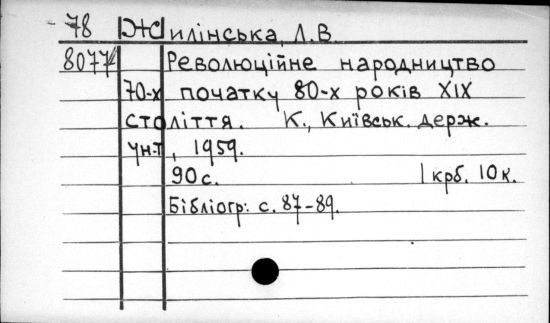 - 78 Жилінська, Л.В.
8077 Революційне народництво
70-х початку 80-х років XIX
століття. К., Київськ. держ.
ун-т, 1959.
90 с. 1 крб. 10 к.
Бібліогр.: с. 87-89.